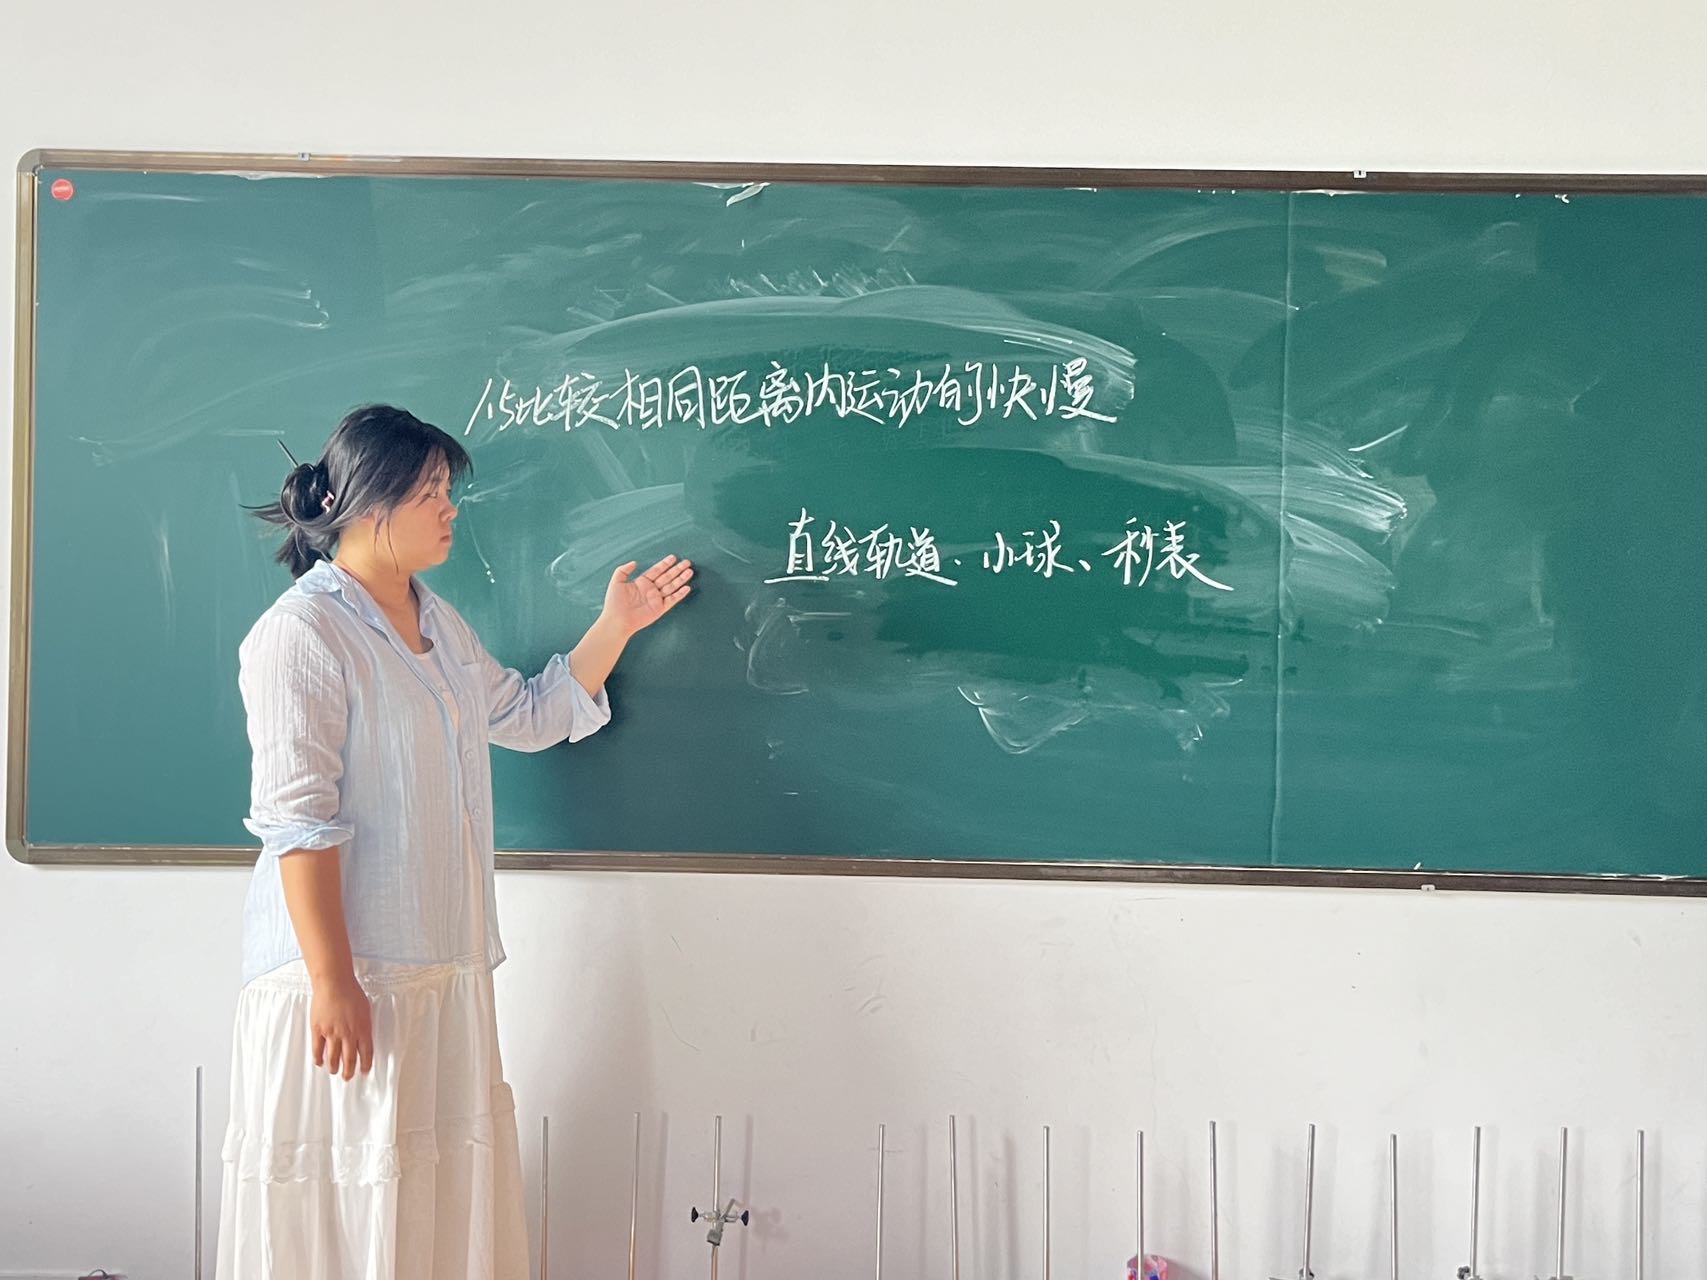 15比较相同距离内运动的快慢
直线轨道、小球、秒表